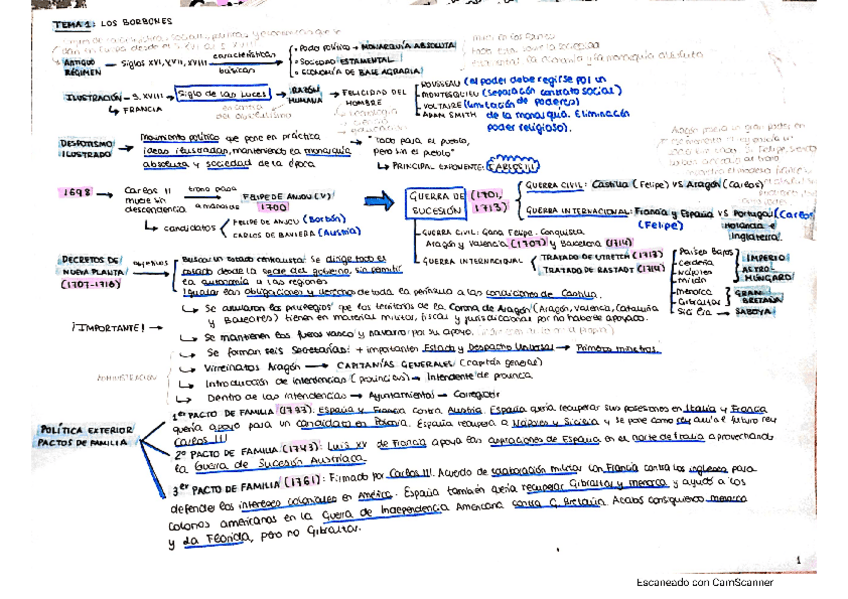 TEMA 1: LOS BORBONES
ANTIGUO RÉGIMEN → Siglos XVI, XVII, XVIII características básicas
• Poder político → MONARQUÍA ABSOLUTA
• Sociedad ESTAMENTAL
• ECONOMÍA DE BASE AGRARIA
ILUSTRACIÓN - S. XVIII → Siglo de las Luces → RAZÓN HUMANA → FELICIDAD DEL HOMBRE
↳ FRANCIA
ROUSSEAU (el poder debe regirse por un
MONTESQUIEU (separación contrato social)
VOLTAIRE (limitación de poderes)
ADAM SMITH de la monarquía. Eliminación
poder religioso).
DESPOTISMO ILUSTRADO → Movimiento político que pone en práctica
ideas ilustradas, manteniendo la monarquía
absoluta y sociedad de la época
→ "Todo para el pueblo,
pero sin el pueblo"
↳ PRINCIPAL EXPONENTE: CARLOS III
1698 → Carlos II
muere sin
descendencia
FELIPE DE ANJOU (V)
1700
↳ candidatos
FELIPE DE ANJOU (Borbón)
CARLOS DE BAVIERA (Austria)
GUERRA DE SUCESIÓN (1701, 1713)
GUERRA CIVIL: Castilla (Felipe) VS Aragón (Carlos)
GUERRA INTERNACIONAL: Francia y España VS Portugal (Carlos)
(Felipe) Holanda e
Inglaterra.
GUERRA CIVIL: Gana Felipe. Conquista
Aragón y Valencia (1707) y Barcelona (1714)
GUERRA INTERNACIONAL
TRATADO DE UTRETCH (1713)
TRATADO DE RASTADT (1714)
Países Bajos
Cerdeña
Nápoles
Milán
IMPERIO
AUSTRO
HÚNGARO
Menorca
Gibraltar
GRAN
BRETAÑA
Sicilia → SABOYA
DECRETOS DE NUEVA PLANTA (1707-1716) objetivos
Buscar un estado centralista: Se dirige todo el
estado desde la sede del gobierno, sin permitir
la autonomía a las regiones
Igualar las obligaciones y derechos de toda la península a las condiciones de Castilla.
¡IMPORTANTE! →
↳ Se anularon los privilegios que los territorios de la Corona de Aragón (Aragón, Valencia, Cataluña
y Baleares) tienen en material militar, fiscal y jurisdiccional por no haberle apoyado.
↳ Se mantienen los fueros vasco y navarro por su apoyo.
↳ Se forman seis Secretarías: + importantes Estado y Despacho Universal → Primeros ministros.
ADMINISTRACIÓN
↳ Virreinatos Aragón → CAPITANÍAS GENERALES (capitán general)
↳ Introducción de intendencias (provincias) → Intendente de provincia
↳ Dentro de las Intendencias → Ayuntamiento → Corregidor
POLÍTICA EXTERIOR
PACTOS DE FAMILIA
1er PACTO DE FAMILIA (1733). España y Francia contra Austria. España quería recuperar sus posesiones en Italia y Francia
quería apoyo para un candidato en Polonia. España recupera a Nápoles y Sicilia y se pone como rey aquí el futuro rey
Carlos III
2º PACTO DE FAMILIA (1743): Luis XV de Francia apoya las aspiraciones de España en el norte de Italia aprovechando
la Guerra de Sucesión Austríaca.
3er PACTO DE FAMILIA (1761): Firmado por Carlos III. Acuerdo de colaboración militar con Francia contra los ingleses para
defender los intereses coloniales en América. España también quería recuperar Gibraltar y Menorca y ayudó a los
colonos americanos en la Guerra de Independencia Americana contra G. Bretaña. Acabó consiguiendo Menorca
y La Florida, pero no Gibraltar.
1
Escaneado con CamScanner